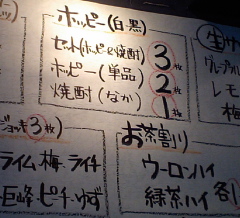 ホッピー(白・黒)
セット(ホッピーと焼酎) 3枚
ホッピー(単品) 2枚
焼酎(なか) 1枚
生
レモ
梅
3枚)
ライム・梅・ライチ
巨峰・ピーチ・ゆず
お茶割り
ウーロンハイ
緑茶ハイ 各1